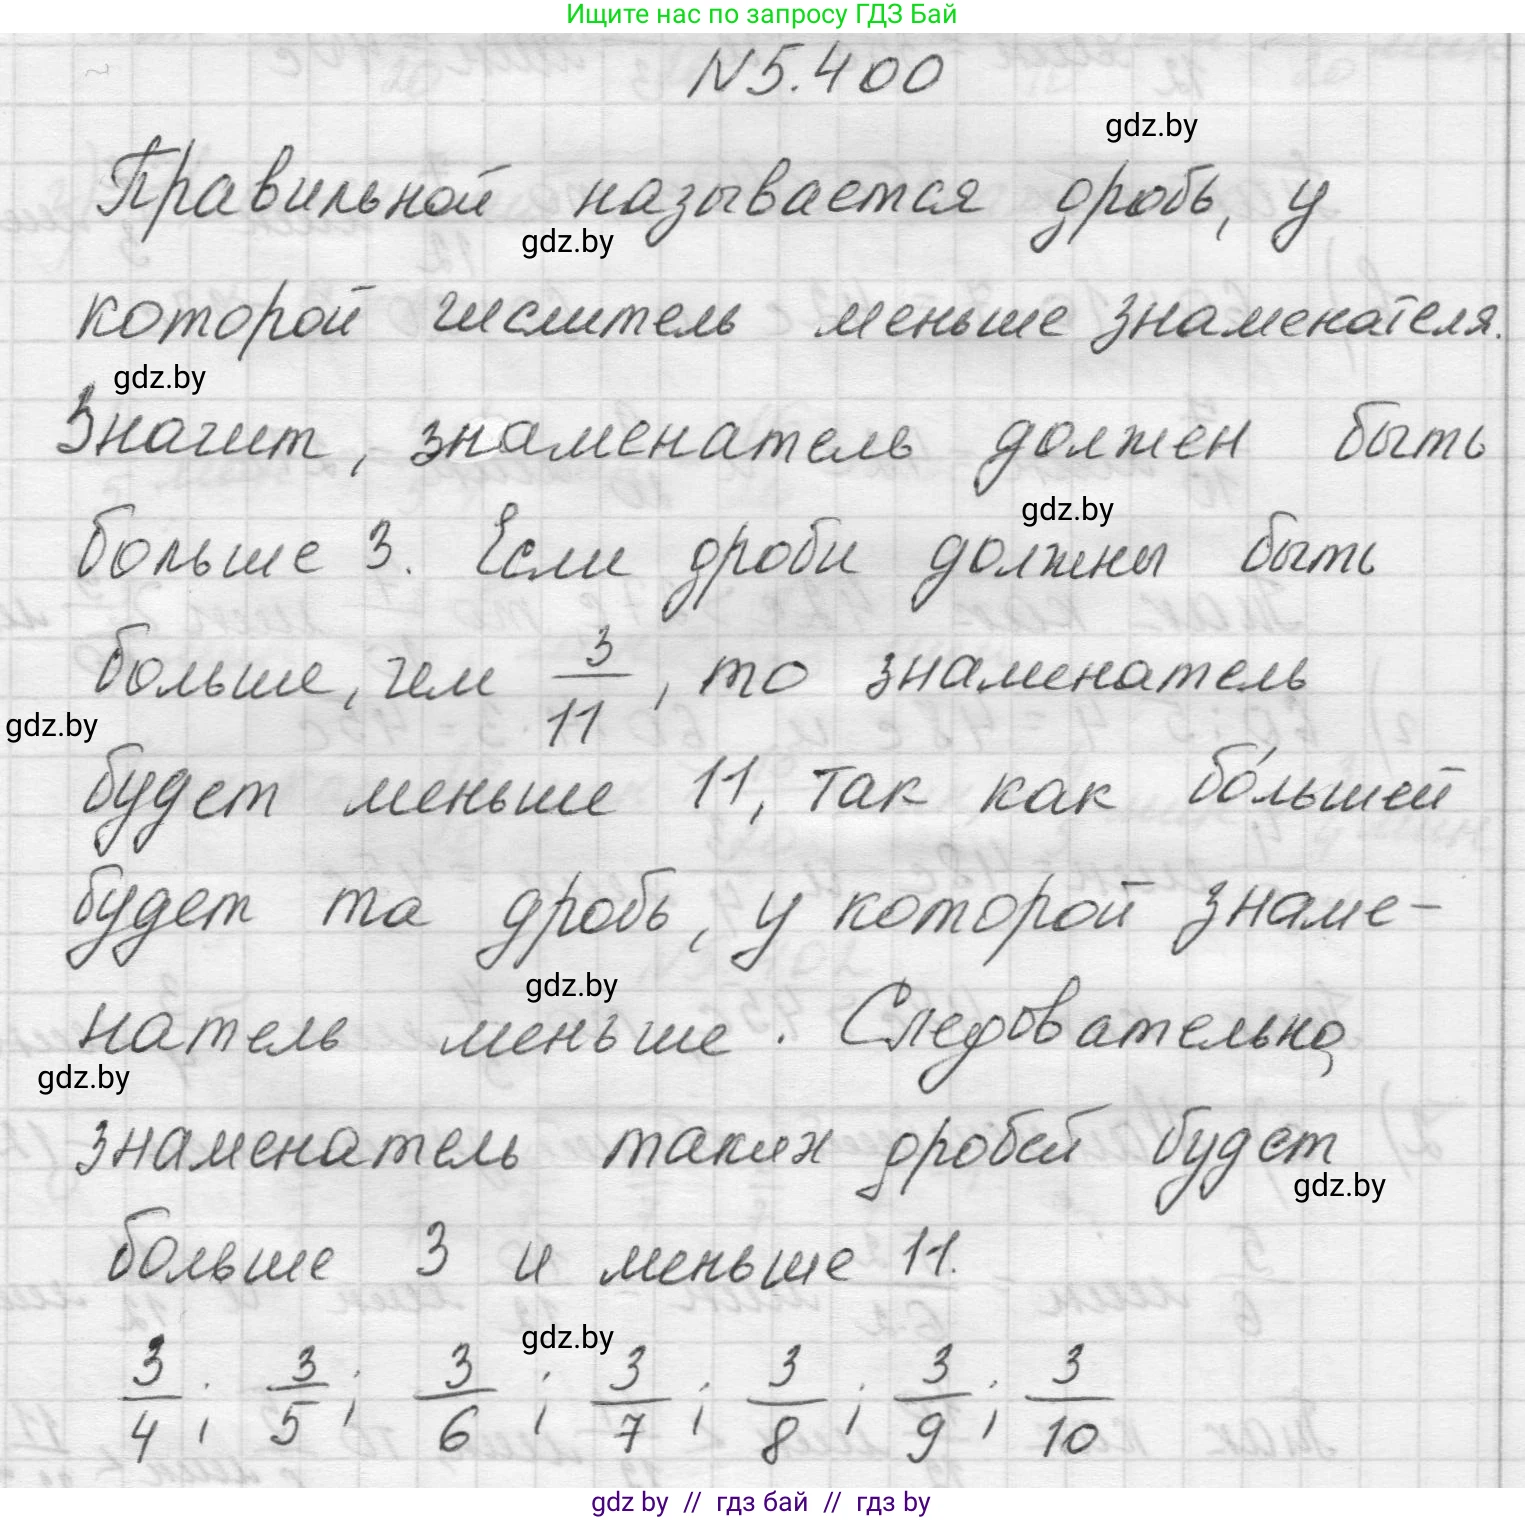 Ищите нас по запросу ГДЗ Бай
N5.400
gdz.by
Правильной называется дробь, у
gdz.by
которой числитель меньше знаменателя.
gdz.by
Значит, знаменатель должен быть
gdz.by
больше 3. Если дроби должны быть
больше, чем 3/11, то знаменатель
gdz.by
будет меньше 11, так как бо́льшей
будет та дробь, у которой знаме-
gdz.by
натель меньше. Следовательно,
gdz.by
знаменатель таких дробей будет
gdz.by
больше 3 и меньше 11.
gdz.by
3/4; 3/5; 3/6; 3/7; 3/8; 3/9; 3/10
gdz by // гдз бай // гдз by